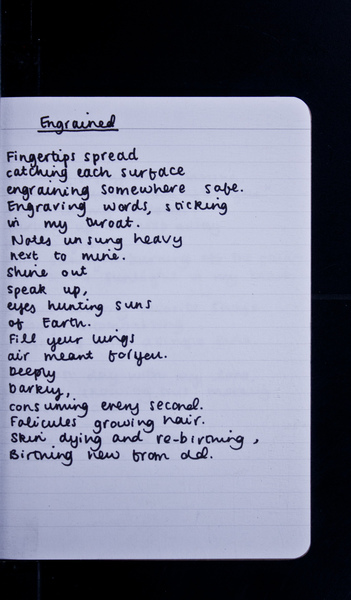 Engrained
Fingertips spread
catching each surface
engraining somewhere safe.
Engraving words, sticking
in my throat.
Notes unsung heavy
next to mine.
Shine out
speak up,
eyes hunting suns
of Earth.
Fill your lungs
air meant for you.
Deeply
Darkly,
consuming every second.
Falicules growing hair.
Skin dying and re-birthing,
Birthing new from old.